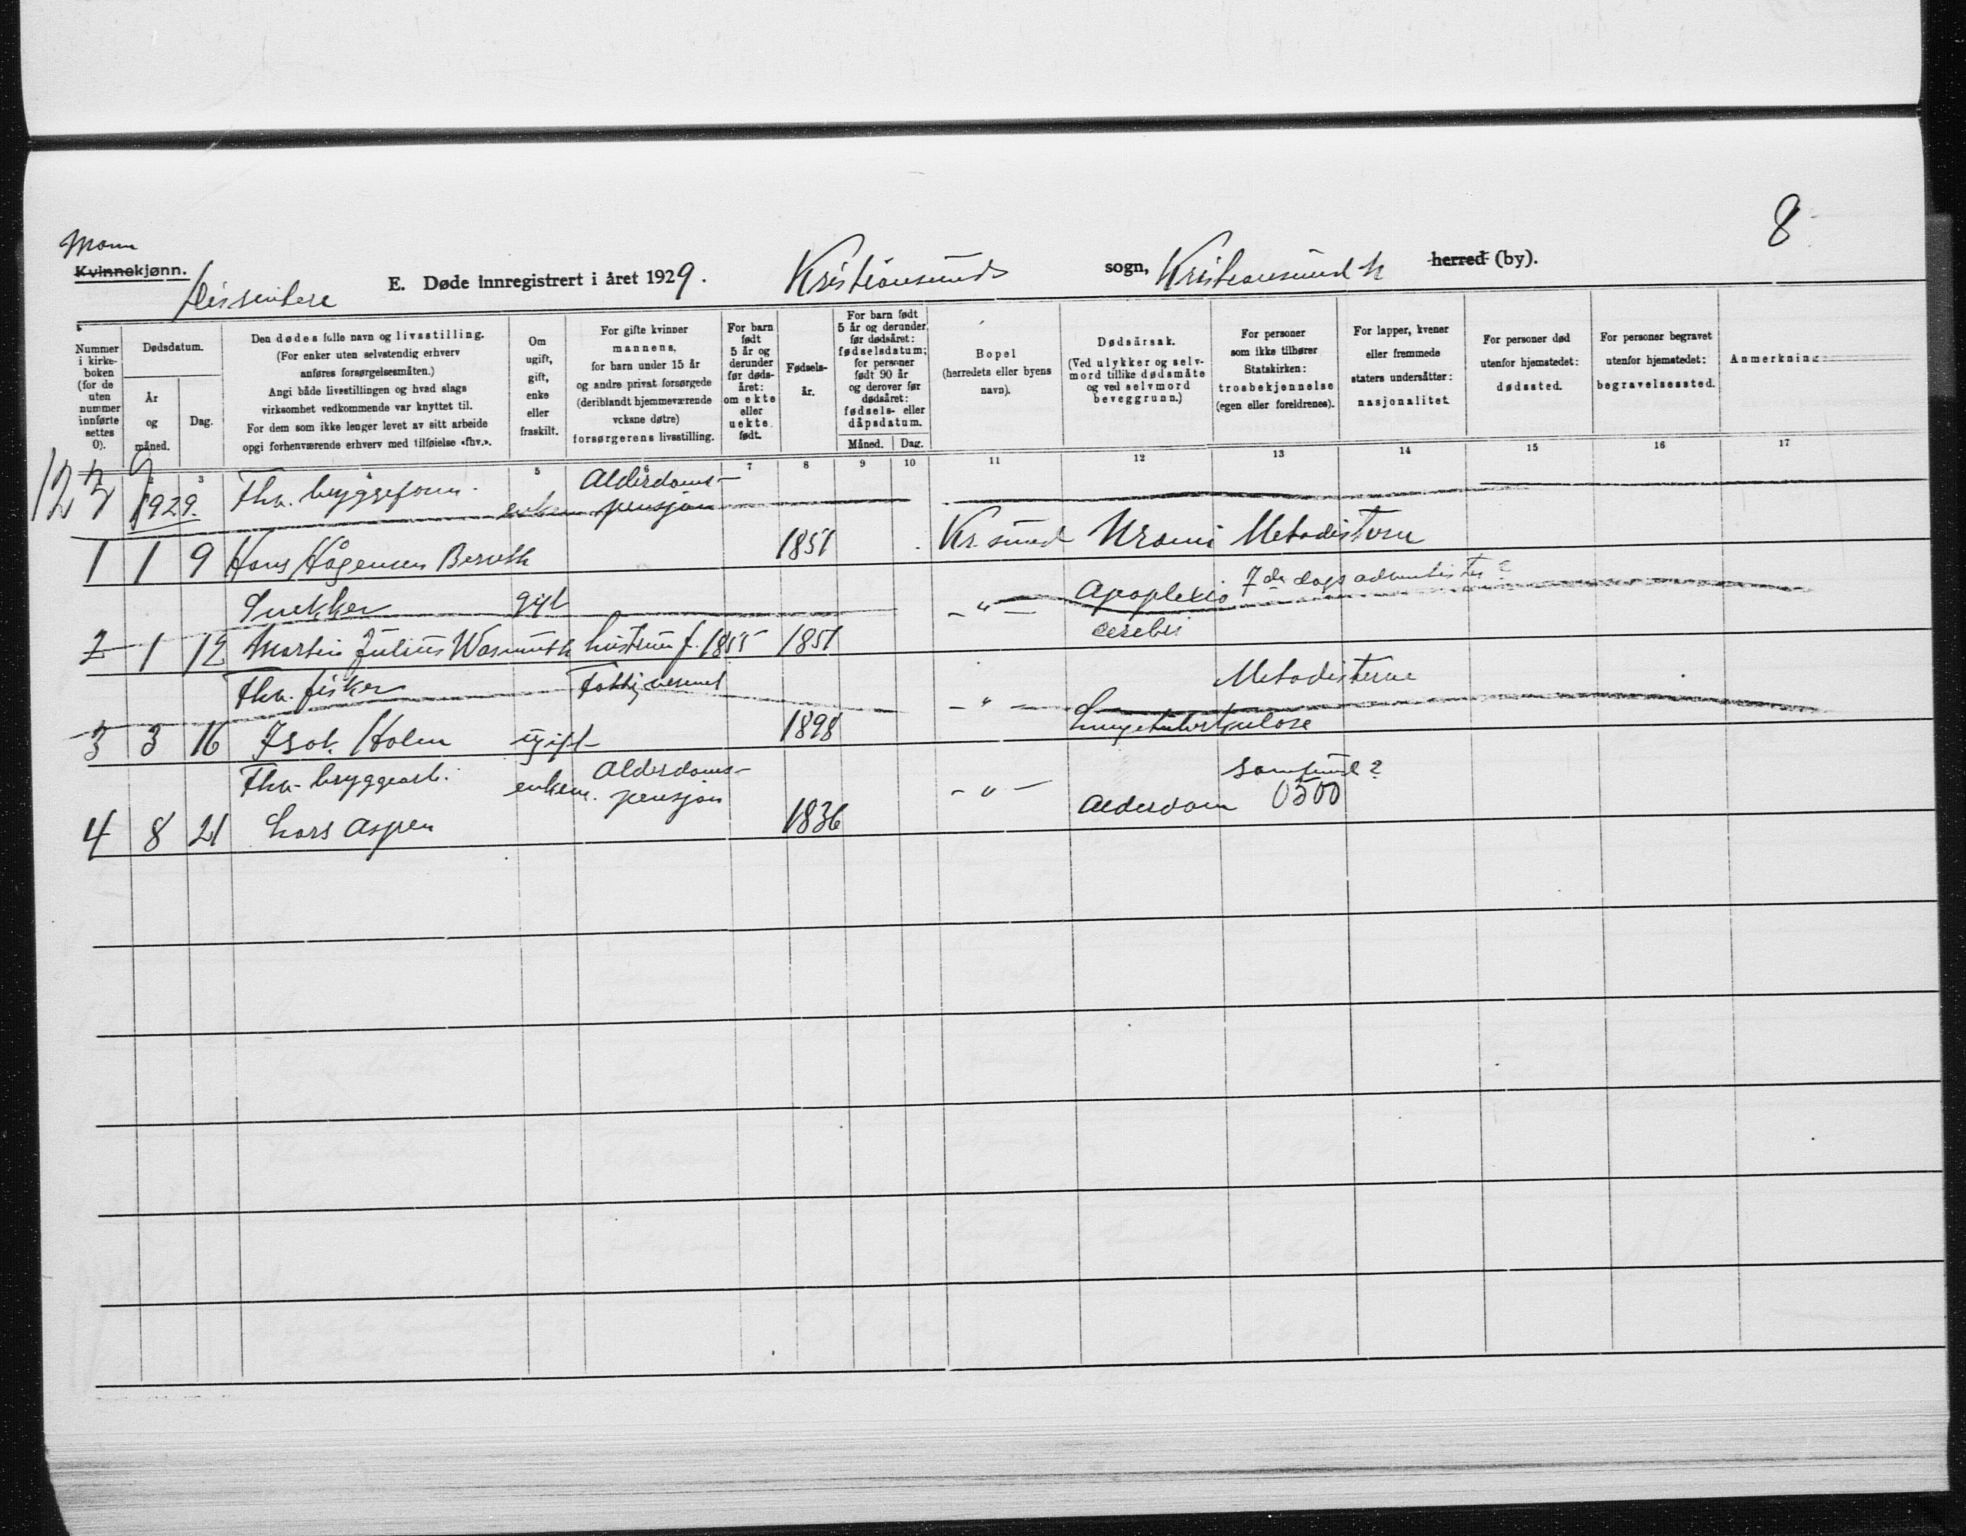 8
Mann
Kvinnekjønn.
Dissentere
E. Døde innregistrert i året 1929. Kristiansunds sogn, Kristiansund N herred (by).
Nummer i kirke-boken (for de uten nummer innførte settes 0).
Dødsdatum.
År og måned.
Dag.
Den dødes fulle navn og livsstilling.
(For enker uten selvstendig erhverv
anføres forsørgelsesmåten.)
Angi både livsstillingen og hvad slags
virksomhet vedkommende var knyttet til.
For dem som ikke lenger levet av sitt arbeide
opgi forhenværende erhverv med tilføielse «fhv.».
Om ugift, gift, enke eller fraskilt.
For gifte kvinner
mannens,
for barn under 15 år
og andre privat forsørgede
(deriblandt hjemmeværende
voksne døtre)
forsørgerens livsstilling.
For barn født 5 år og derunder før døds-året: om ekte eller uekte født.
Fødsels-år.
For barn født 5 år og derunder før dødsåret: fødselsdatum; for personer født 90 år og derover før dødsåret: fødsels- eller dåpsdatum.
Måned. Dag.
Bopel
(herredets eller byens
navn).
Dødsårsak.
(Ved ulykker og selv-
mord tillike dødsmåte
og ved selvmord
beveggrunn.)
For personer
som ikke tilhører
Statskirken:
trosbekjennelse
(egen eller foreldrenes).
For lapper, kvener
eller fremmede
staters undersåtter:
nasjonalitet.
For personer død
utenfor hjemstedet:
dødssted.
For personer begravet
utenfor hjemstedet:
begravelsessted.
Anmerkning
3 4 5 6 7 8 9 10 11 12 13 14 15 16 17
1929. Fhv. bryggeform. enkem. Alderdoms-
pensjon
1 1 9 Hans Hågensen 1851 Kr.sund Urami Metodisterne
Snekker gift - " - Apoplexia 7de dags adventister?
cerebri
2 1 12 Martin Julius Wasmuth hustrun f. 1855 1851
Fhv. fisker Fattigvesenet - " - Metodisterne
3 3 16 Isak Holm ugift 1898 Lungetuberkulose
Fhv. bryggearb. enkem. Alderdoms-
pensjon - " - samfund?
4 8 21 Lars Aspen 1836 Alderdom 0500